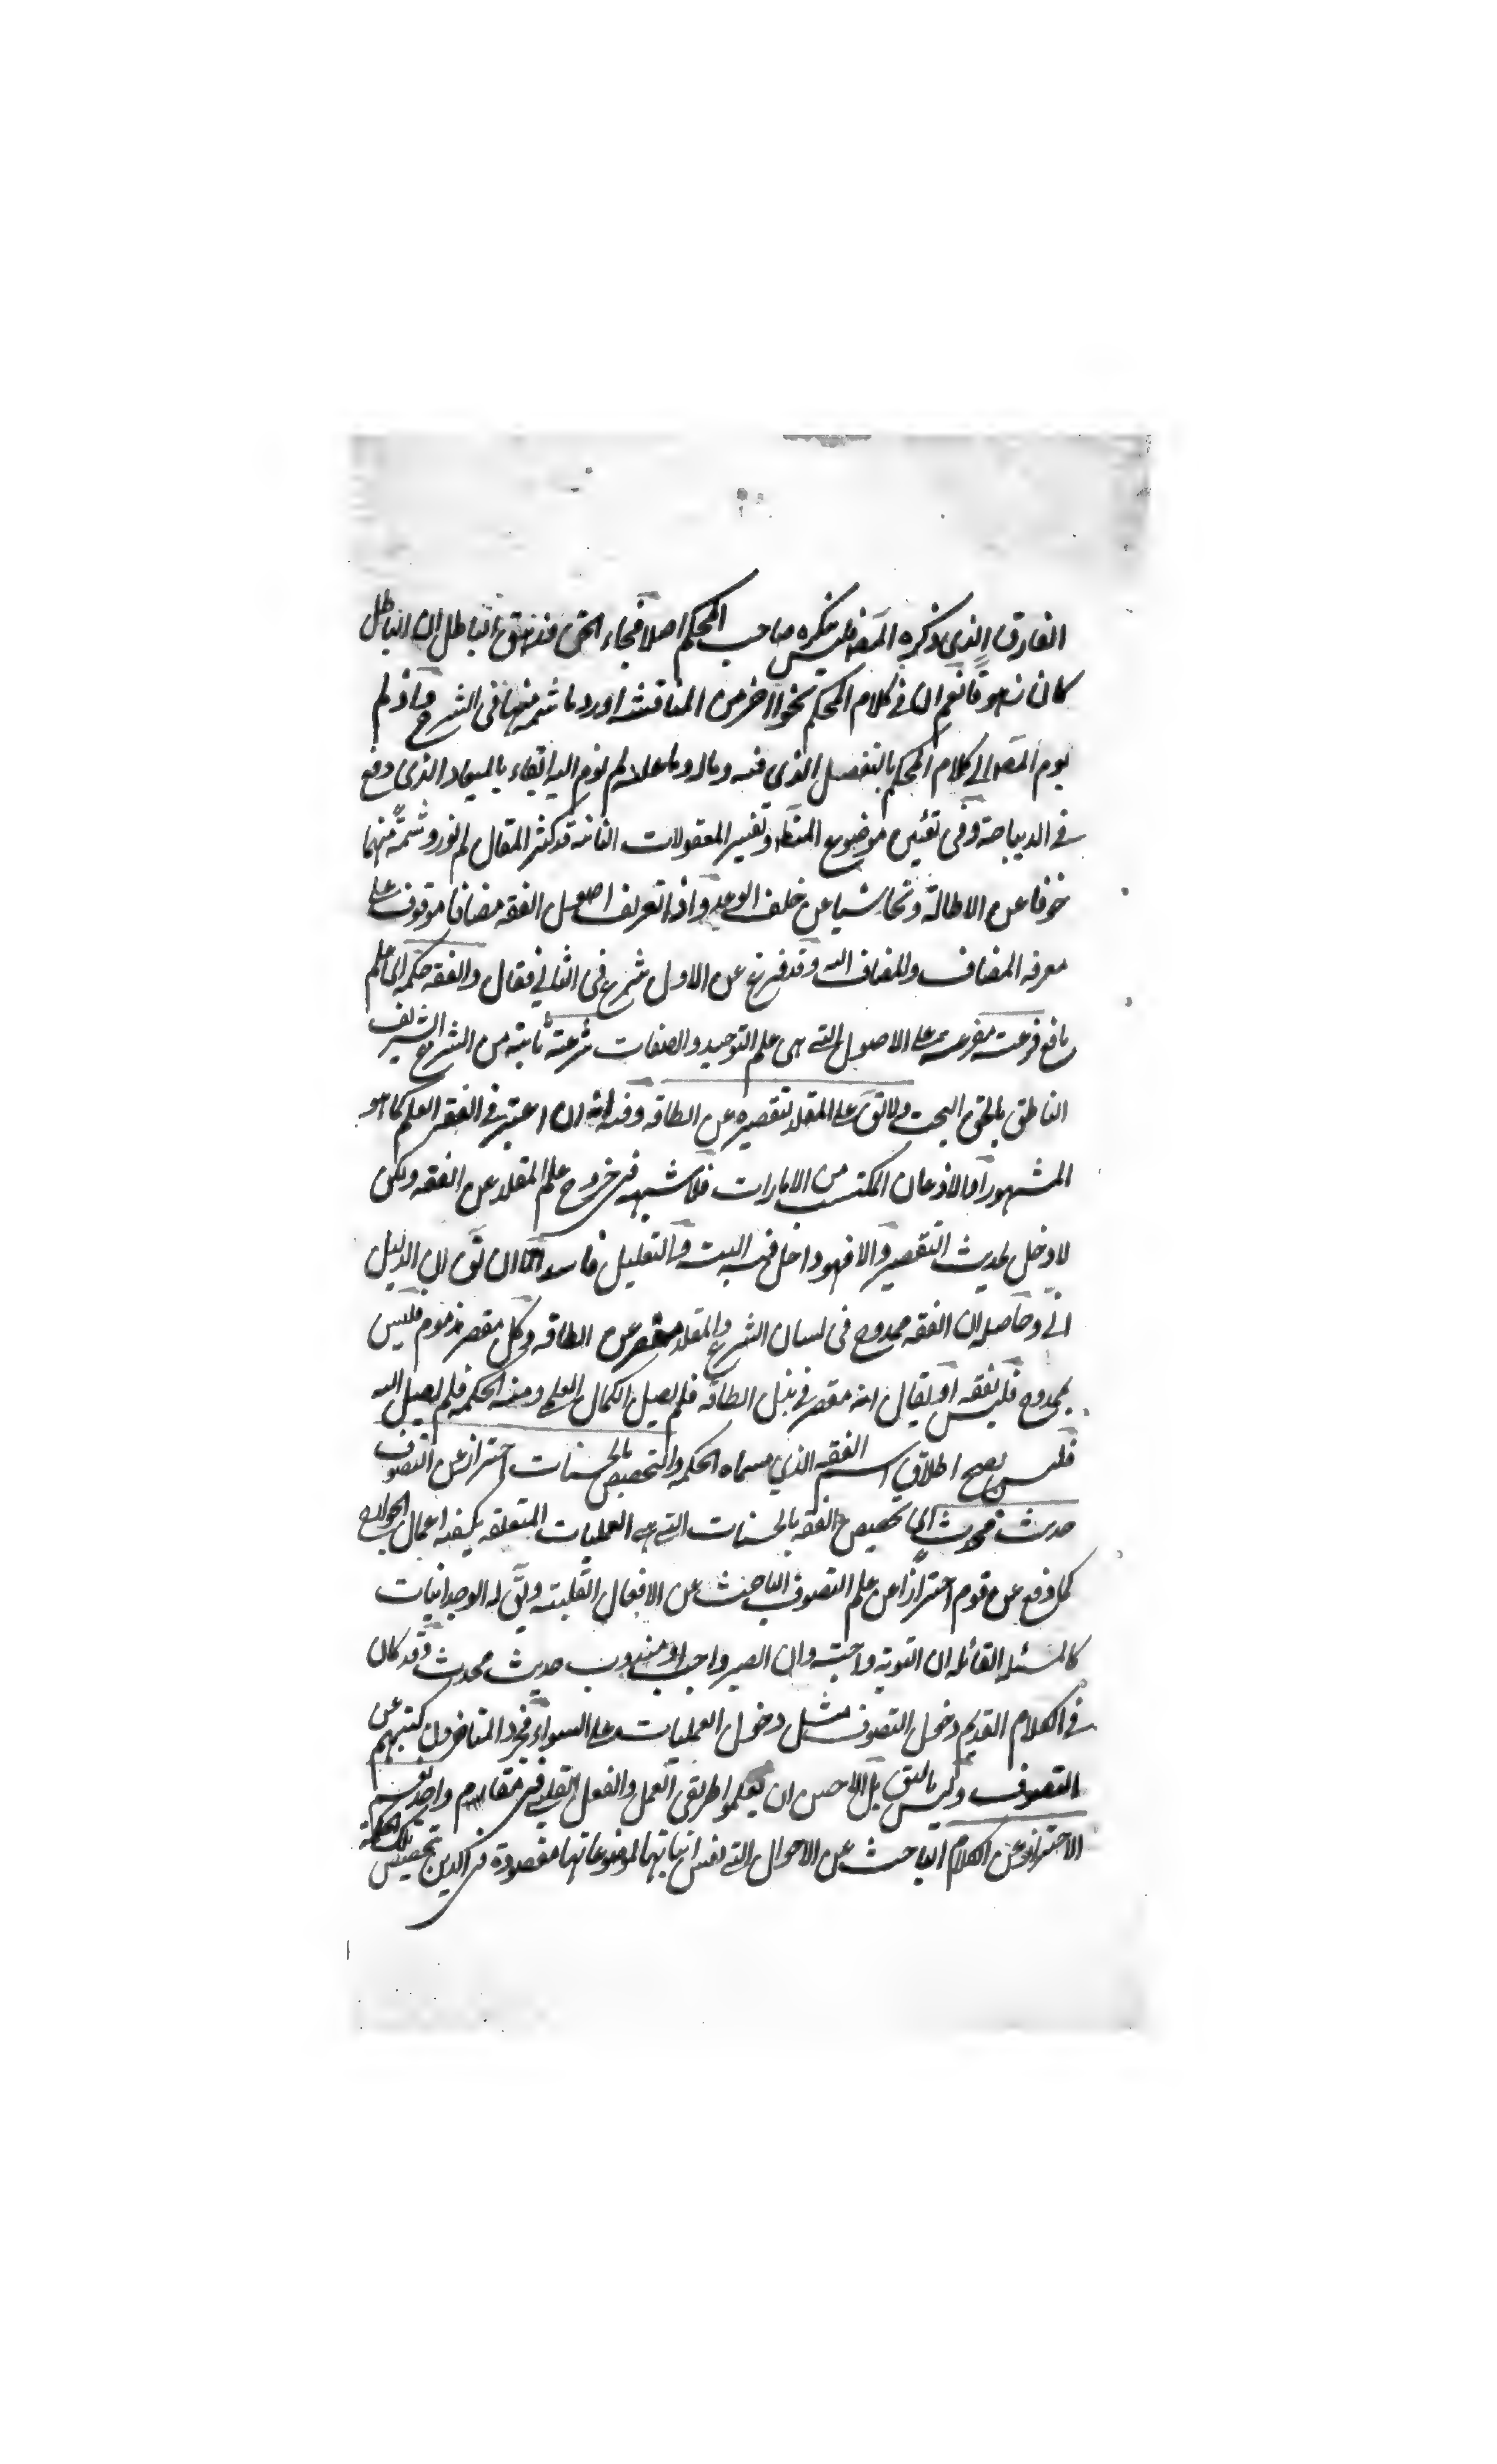 الفارق الذي ذكره المصنف ليس ينكره صاحب المحكم اصلا فجاء الحق فذهق الباطل ان الباطل
كان زهوقا نعم ان في كلام المحكم نحوا اخر من المناقشة اورد ما شمة منها في الشرح واذ لم
يوم المصـ الى كلام المحكم بالتفصيل الذي فيه وماله وما عليه لم نوم اليه ايفاء بالميعاد الذي وقع
في الديباجة وفي تعيين موضوع المنطق وتفسير المعقولات الثانية قد كثر المقال لم نورد شمة منهما
خوفا عن الاطالة وتحاشيا عن خلف الوعد واذ تعريف اصول الفقه مضافا موقوف على
معرفة المضاف والمضاف اليه وقد فرغ عن الاول شرع في الثاني فقال والفقه حكمة اي علم
نافع فرعية مفرعة على الاصول التي هي علم التوحيد والصفات شرعية ثابتة من الشرع الشريف
الناطق بالحق البحت ولا يق على المقلد لتقصيره عن الطاقة وفيه انه ان اعتبر في الفقه العلم كما هو
المشهور او الاذعان المكتسب من الامارات فلا شبهة في خروج علم المقلد عن الفقه ولكن
لا دخل لحديث التقصير والا فهو داخل فيه البتة والتعليل فاسد الا ان يق ان الدليل
اني وحاصله ان الفقه ممدوح في لسان الشرع والمقلد مقصر عن الطاقة وكل مقصر مذموم فليس
بممدوح فليس بفقه او يقال انه مقصر في بذل الطاقة فلم يصل الكمال العلمي ومنه الحكمة فلم يصل اليه
فليس يصح اطلاق اسم الفقه الذي مسماه الحكمة والتخصيص بالحسيات احترازا عن التصوف
حديث محدث اي تخصيص الفقه بالحسيات التي هي العمليات المتعلقة بكيفية اعمال الجوارح
كما وقع عن قوم احترازا عن علم التصوف الباحث عن الافعال القلبية ويق له الوجدانيات
كالمسئلة القائلة ان التوبة واجبة وان الصبر واجب او مندوب حديث محدث وقد كان
في الكلام القديم دخول التصوف مثل دخول العمليات على السواء فجرد المتاخرون كتبهم عن
التصوف وليس باليق بل الاحسن ان يعلموا طريق العمل والفعل القلبي في مقام واحد نعم
الاحتراز عن الكلام الباحث عن الاحوال التي نفس اثباتها لموضوعاتها مقصودة في الدين بتخصيص تلك الحكمة